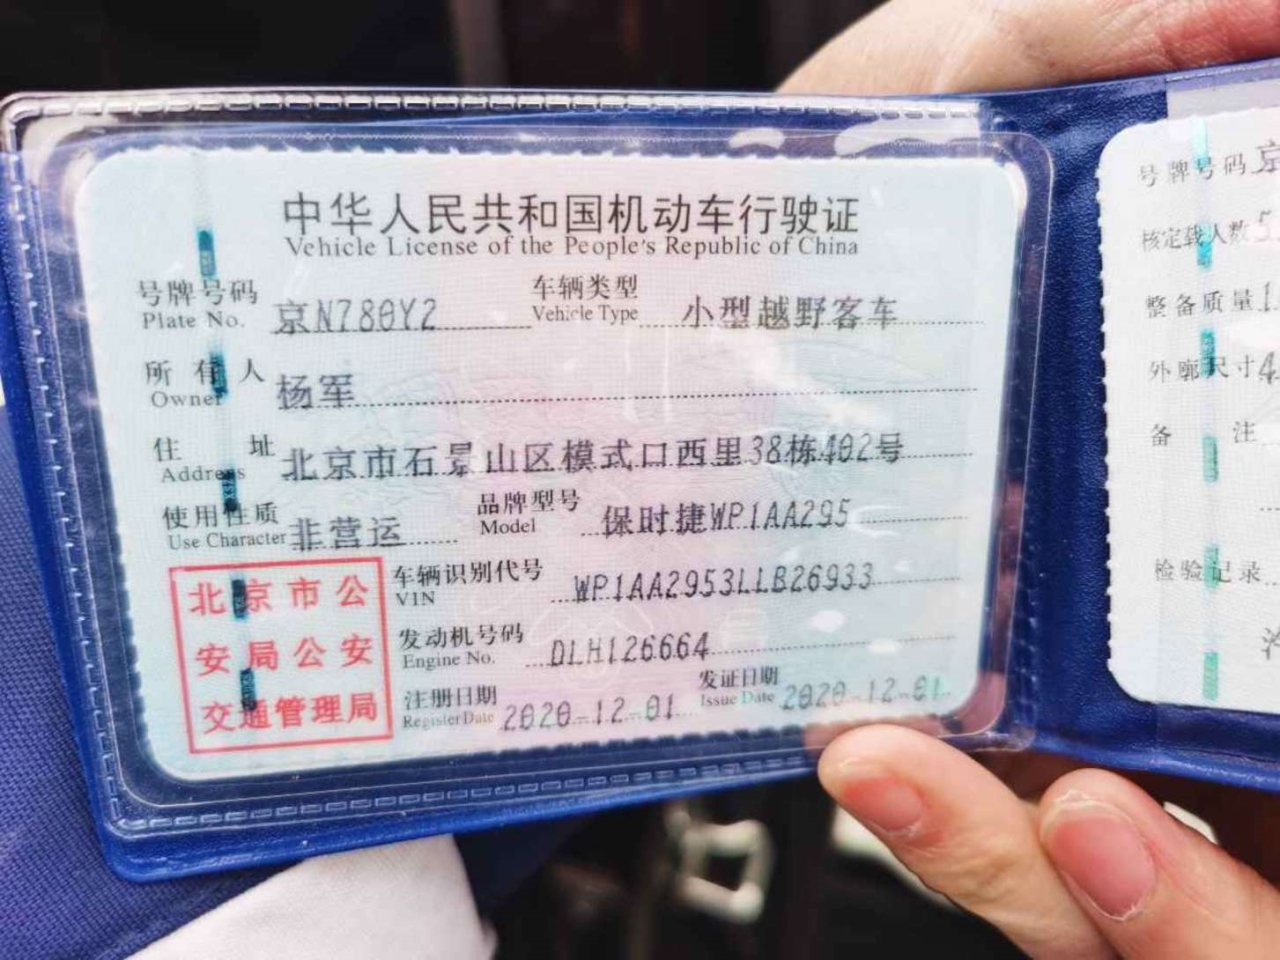 中华人民共和国机动车行驶证
Vehicle License of the People's Republic of China
号牌号码 京N780Y2 车辆类型 小型越野客车
Plate No. Vehicle Type
所有人 杨军
Owner
住址 北京市石景山区模式口西里38栋402号
Address
使用性质 非营运 品牌型号 保时捷WP1AA295
Use Character Model
车辆识别代号 WP1AA2953LLB26933
VIN
发动机号码 DLH126664
Engine No.
注册日期 2020-12-01 发证日期 2020-12-01
Register Date Issue Date
北京市公
安局公安
交通管理局
号牌号码 京
核定载人数 5
整备质量 1
外廓尺寸 4
备注
检验记录